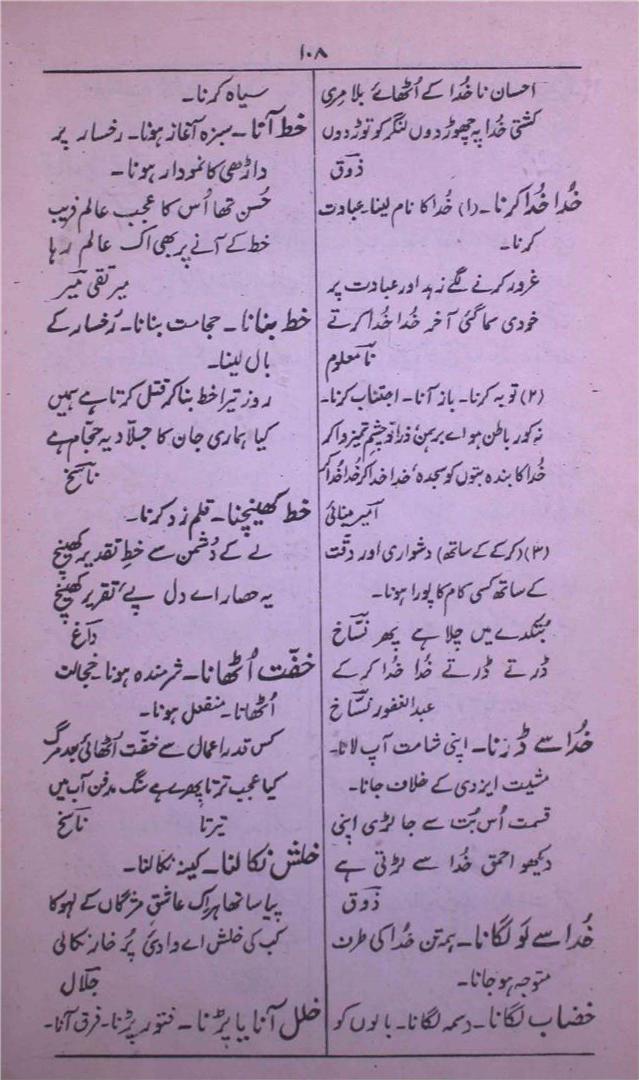 ۱۰۸
احسان نا خُدا کے اُٹھائے بلا مری
کشتی خُدا پہ چھوڑ دوں لنگر کو توڑ دوں
ذوقؔ
خُدا خُدا کرنا۔ (۱) خُدا کا نام لینا۔ عبادت
کرنا۔
غرور کرنے لگے زہد اور عبادت پر
خودی سما گئی آخر خُدا خُدا کرتے
نامعلوم
(۲) توبہ کرنا۔ باز آنا۔ اجتناب کرنا۔
نہ کور باطن ہو اے برہمن ذرا تو چشمِ تمیز وا کر
خُدا کا بندہ بتوں کو سجدہ، خدا خدا کر خُدا خُدا کر
امیرؔ مینائی
(۳) (کرکے کے ساتھ) دشواری اور دقّت
کے ساتھ کسی کام کا پورا ہونا۔
بُتکدے میں چلا ہے پھر نسّاخؔ
ڈرتے ڈرتے خُدا خُدا کر کے
عبدالغفور نسّاخؔ
خُدا سے لڑنا۔ اپنی شامت آپ لانا۔
مشیت ایزدی کے خلاف جانا۔
قسمت اُس بُت سے جا لڑی اپنی
دیکھو احمق خُدا سے لڑتی ہے
ذوقؔ
خُدا سے لَو لگانا۔ ہمہ تن خُدا کی طرف
متوجہ ہو جانا۔
خضاب لگانا۔ وسمہ لگانا۔ بالوں کو
سیاہ کرنا۔
خط آنا۔ سبزہ آغاز ہونا۔ رخسار پر
داڑھی کا نمودار ہونا۔
حُسن تھا اُس کا عجب عالم فریب
خط کے آنے پر بھی اک عالم رہا
میر تقی میرؔ
خط بنانا۔ حجامت بنانا۔ رُخسار کے
بال لینا۔
روز تیرا خط بنا کر قتل کرتا ہے ہمیں
کیا ہماری جان کا جلّاد یہ حجّام ہے
ناسخؔ
خط کھینچنا۔ قلم زد کرنا۔
لے کے دُشمن سے خطِ تقدیر کھینچ
یہ حصار اے دل پئے تقریر کھینچ
داغؔ
خفّت اُٹھانا۔ شرمندہ ہونا خجالت
اُٹھانا۔ منفعل ہونا۔
کس قدر اعمال سے خفّت اُٹھائی بعد مرگ
کیا عجب ترتا پھرے ہے سنگ مدفن آب میں
تیرتا ناسخؔ
خلش نکالنا۔ کینہ نکالنا۔
پیاسا تھا ہر اِک عاشق مژگاں کے لہو کا
کب کی خلش اے وادیٔ پُر خار نکالی
جلالؔ
خلل آنا یا پڑنا۔ فتور پڑنا۔ فرق آنا۔